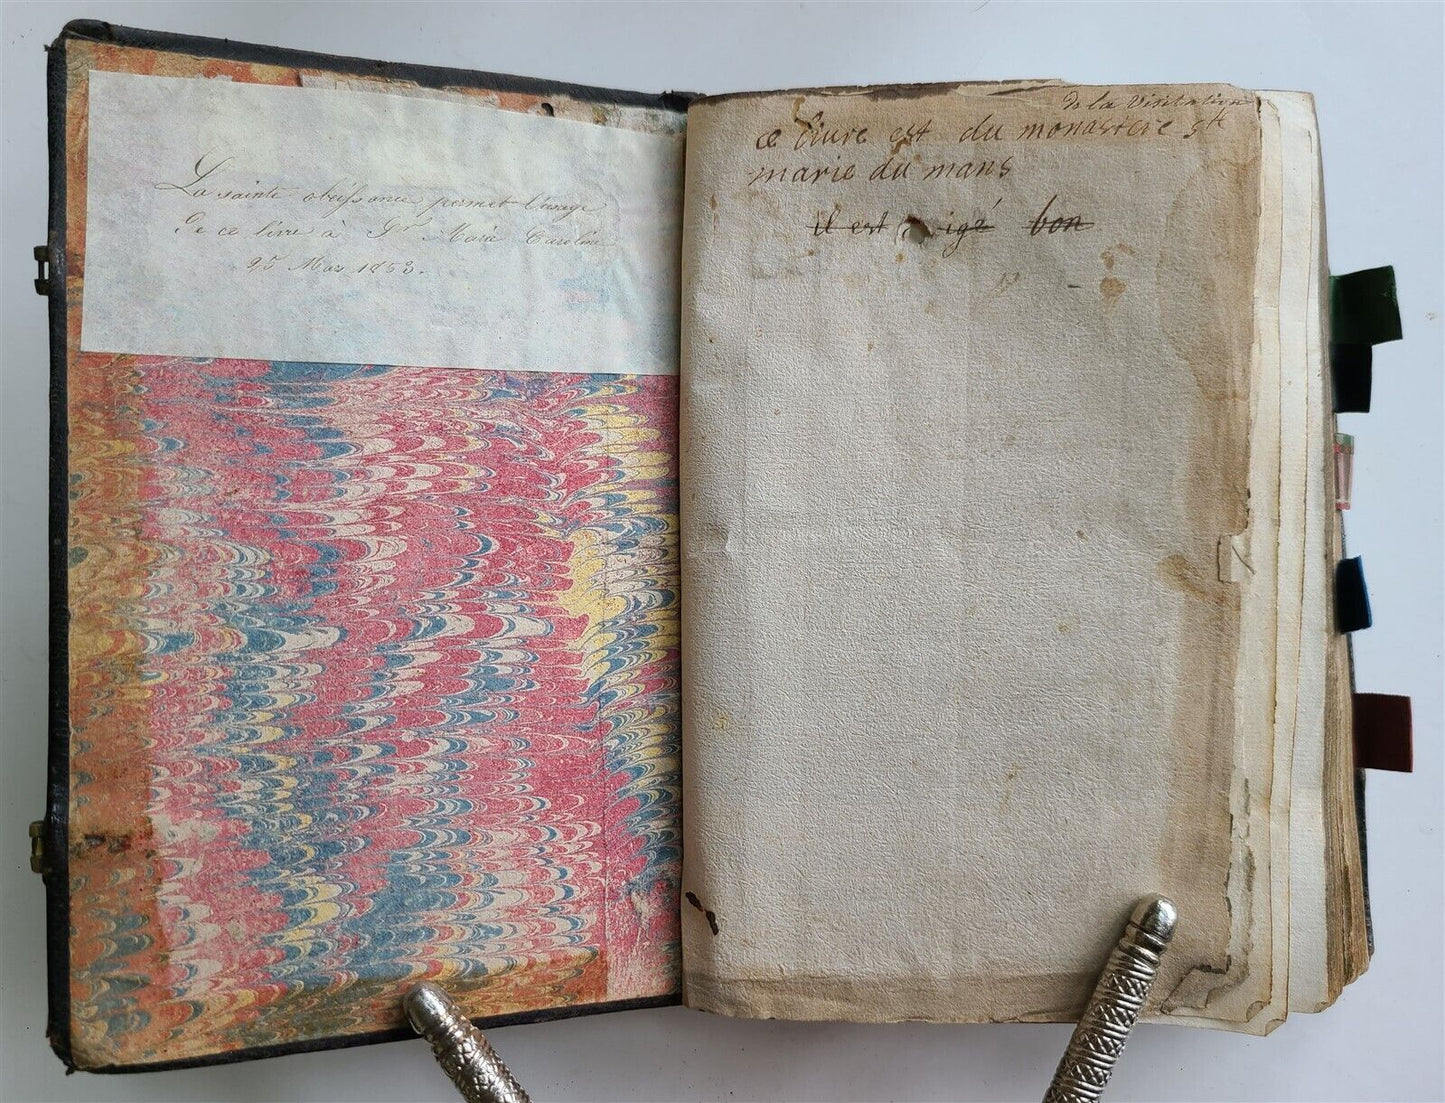 La sainte obeissance permet l'usage
De ce livre à Sr Marie Caroline
25 Mars 1853.
de la visitation
ce livre est du monastere ste
marie du mans
il est bon